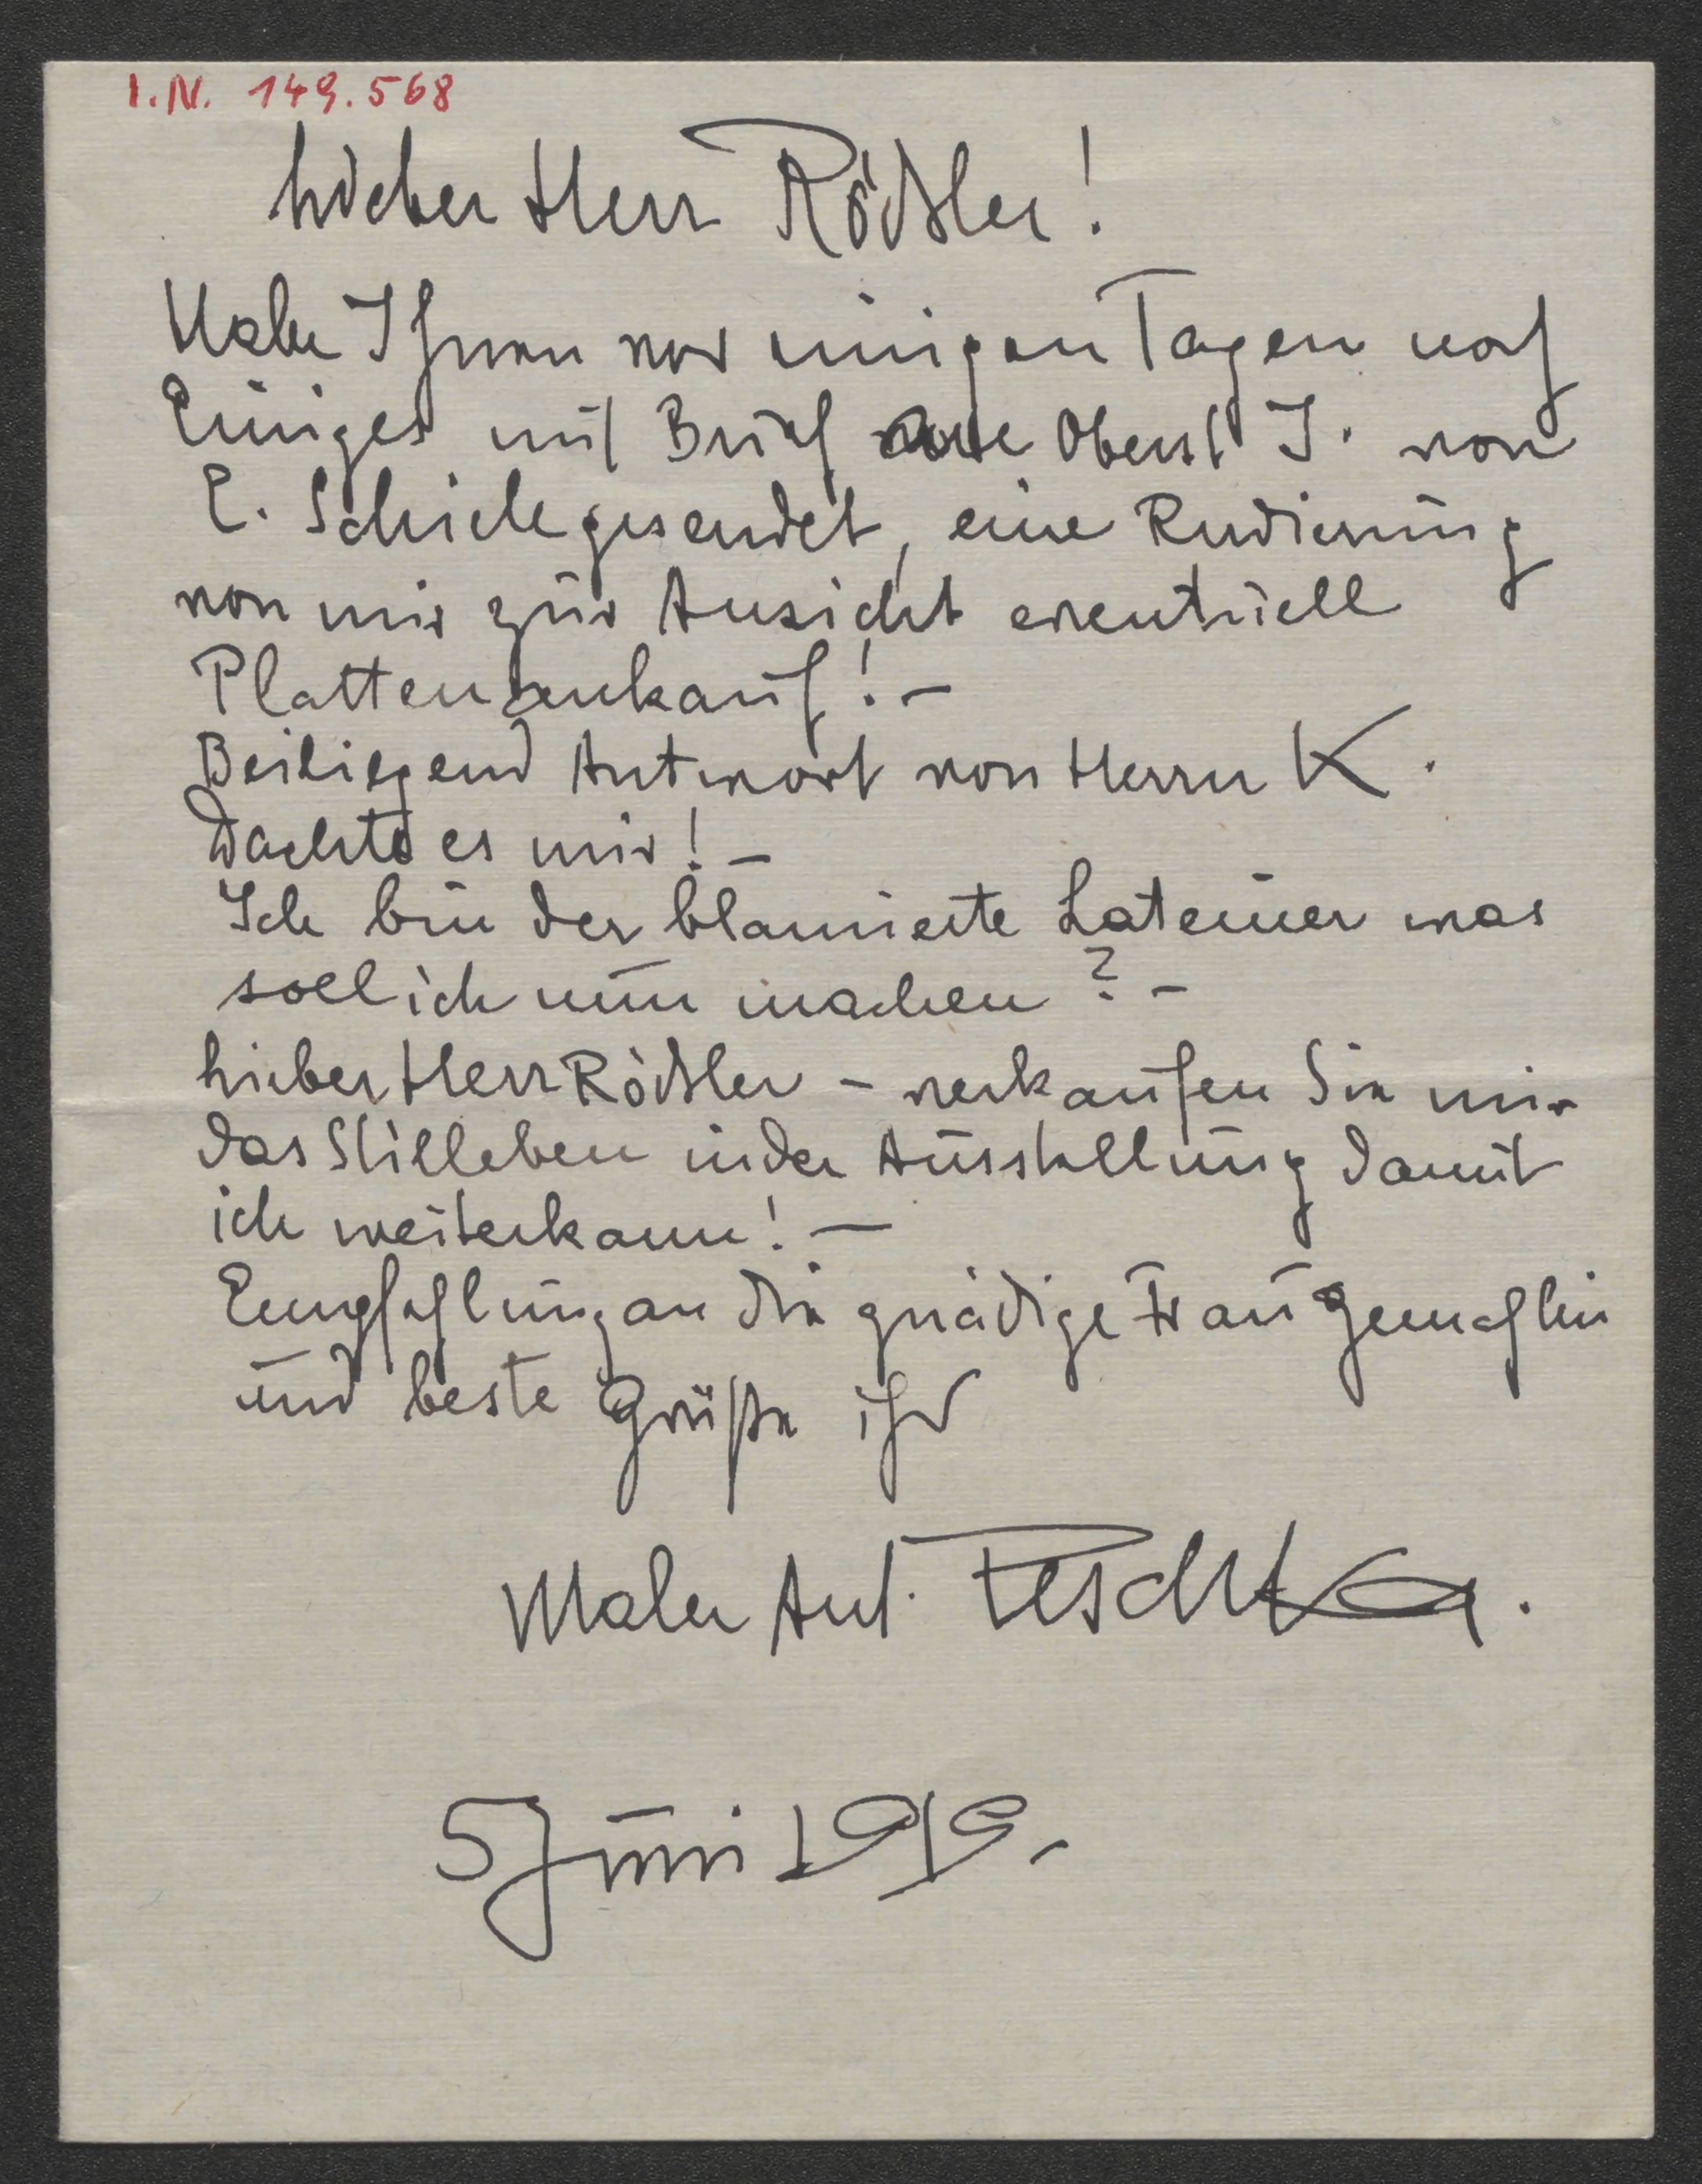 I.N. 149.568
Lieber Herr Rößler!
Habe Ihnen vor einigen Tagen noch
Einiges mit Brief Oberst J. von
E. Schiele gesendet, eine Radierung
von mir zur Ansicht eventuell
Plattenankauf! –
Beiliegend Antwort von Herrn K.
Dachte es mir! –
Ich bin der blamierte Lateiner was
soll ich nun machen? –
Lieber Herr Rößler – verkaufen Sie mir
das Stilleben in der Ausstellung damit
ich weiterkann! –
Empfehlung an die gnädige Frau Gemahlin
und beste Grüße ihr
Maler Ant. Peschka.
5 Juni 1919. –